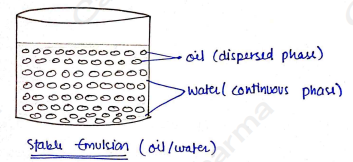 oil (dispersed phase)
water (continuous phase)
Stable Emulsion (oil/water)